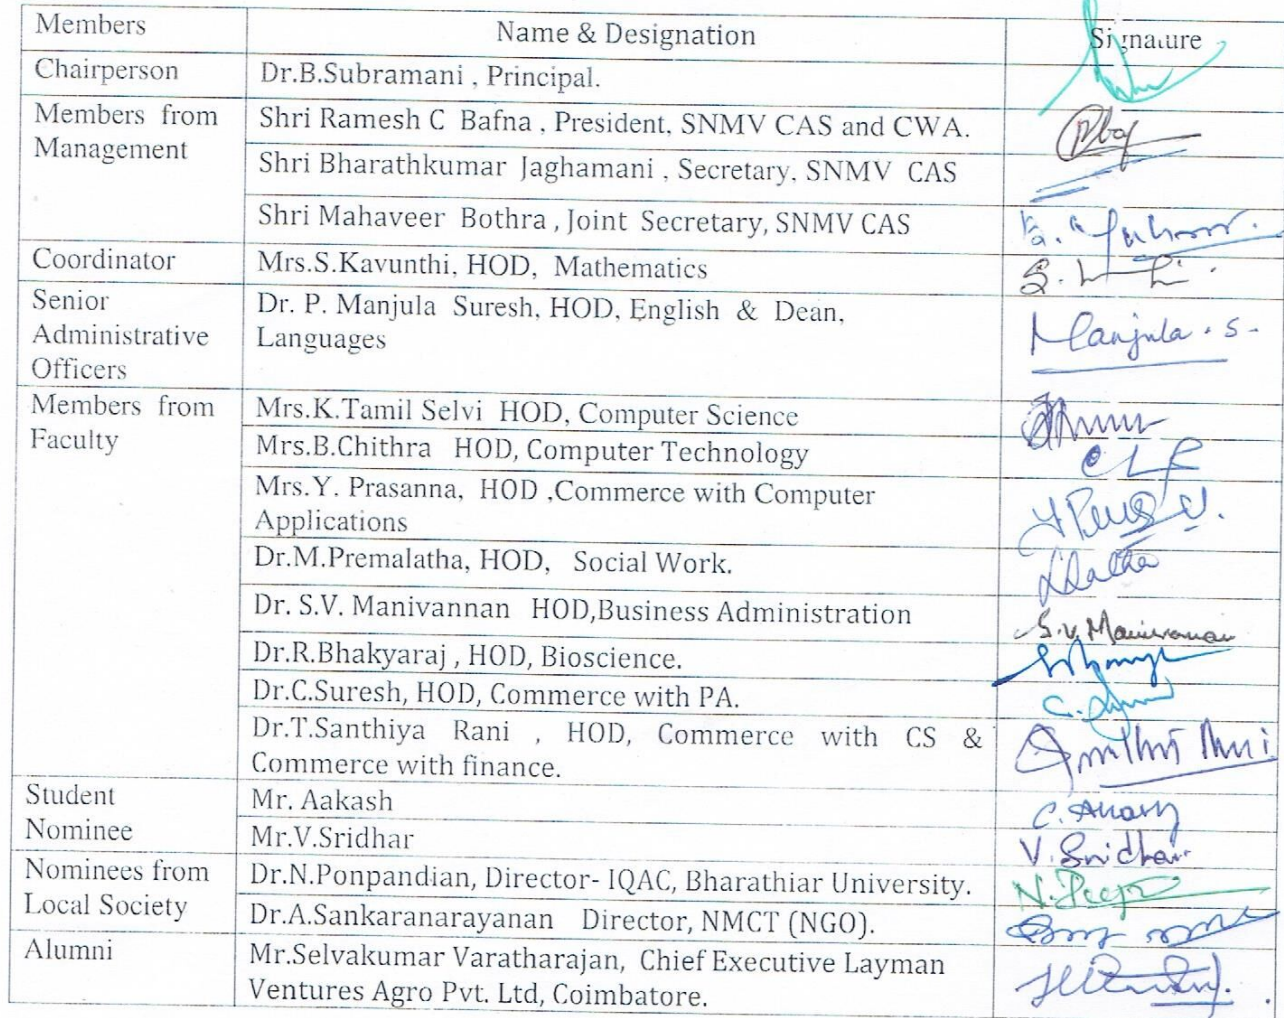 Members Name & Designation Signature
Chairperson Dr.B.Subramani , Principal.
Members from Shri Ramesh C Bafna , President, SNMV CAS and CWA.
Management
Shri Bharathkumar Jaghamani , Secretary, SNMV CAS
Shri Mahaveer Bothra , Joint Secretary, SNMV CAS
Coordinator Mrs.S.Kavunthi, HOD, Mathematics
Senior Dr. P. Manjula Suresh, HOD, English & Dean,
Administrative Languages Manjula . S -
Officers
Members from Mrs.K.Tamil Selvi HOD, Computer Science
Faculty
Mrs.B.Chithra HOD, Computer Technology
Mrs.Y. Prasanna, HOD ,Commerce with Computer
Applications
Dr.M.Premalatha, HOD, Social Work.
Dr. S.V. Manivannan HOD,Business Administration S.V. Manivannan
Dr.R.Bhakyaraj , HOD, Bioscience.
Dr.C.Suresh, HOD, Commerce with PA.
Dr.T.Santhiya Rani , HOD, Commerce with CS &
Commerce with finance.
Student Mr. Aakash
Nominee Mr.V.Sridhar V. Sridhar
Nominees from Dr.N.Ponpandian, Director- IQAC, Bharathiar University.
Local Society Dr.A.Sankaranarayanan Director, NMCT (NGO).
Alumni Mr.Selvakumar Varatharajan, Chief Executive Layman
Ventures Agro Pvt. Ltd, Coimbatore.